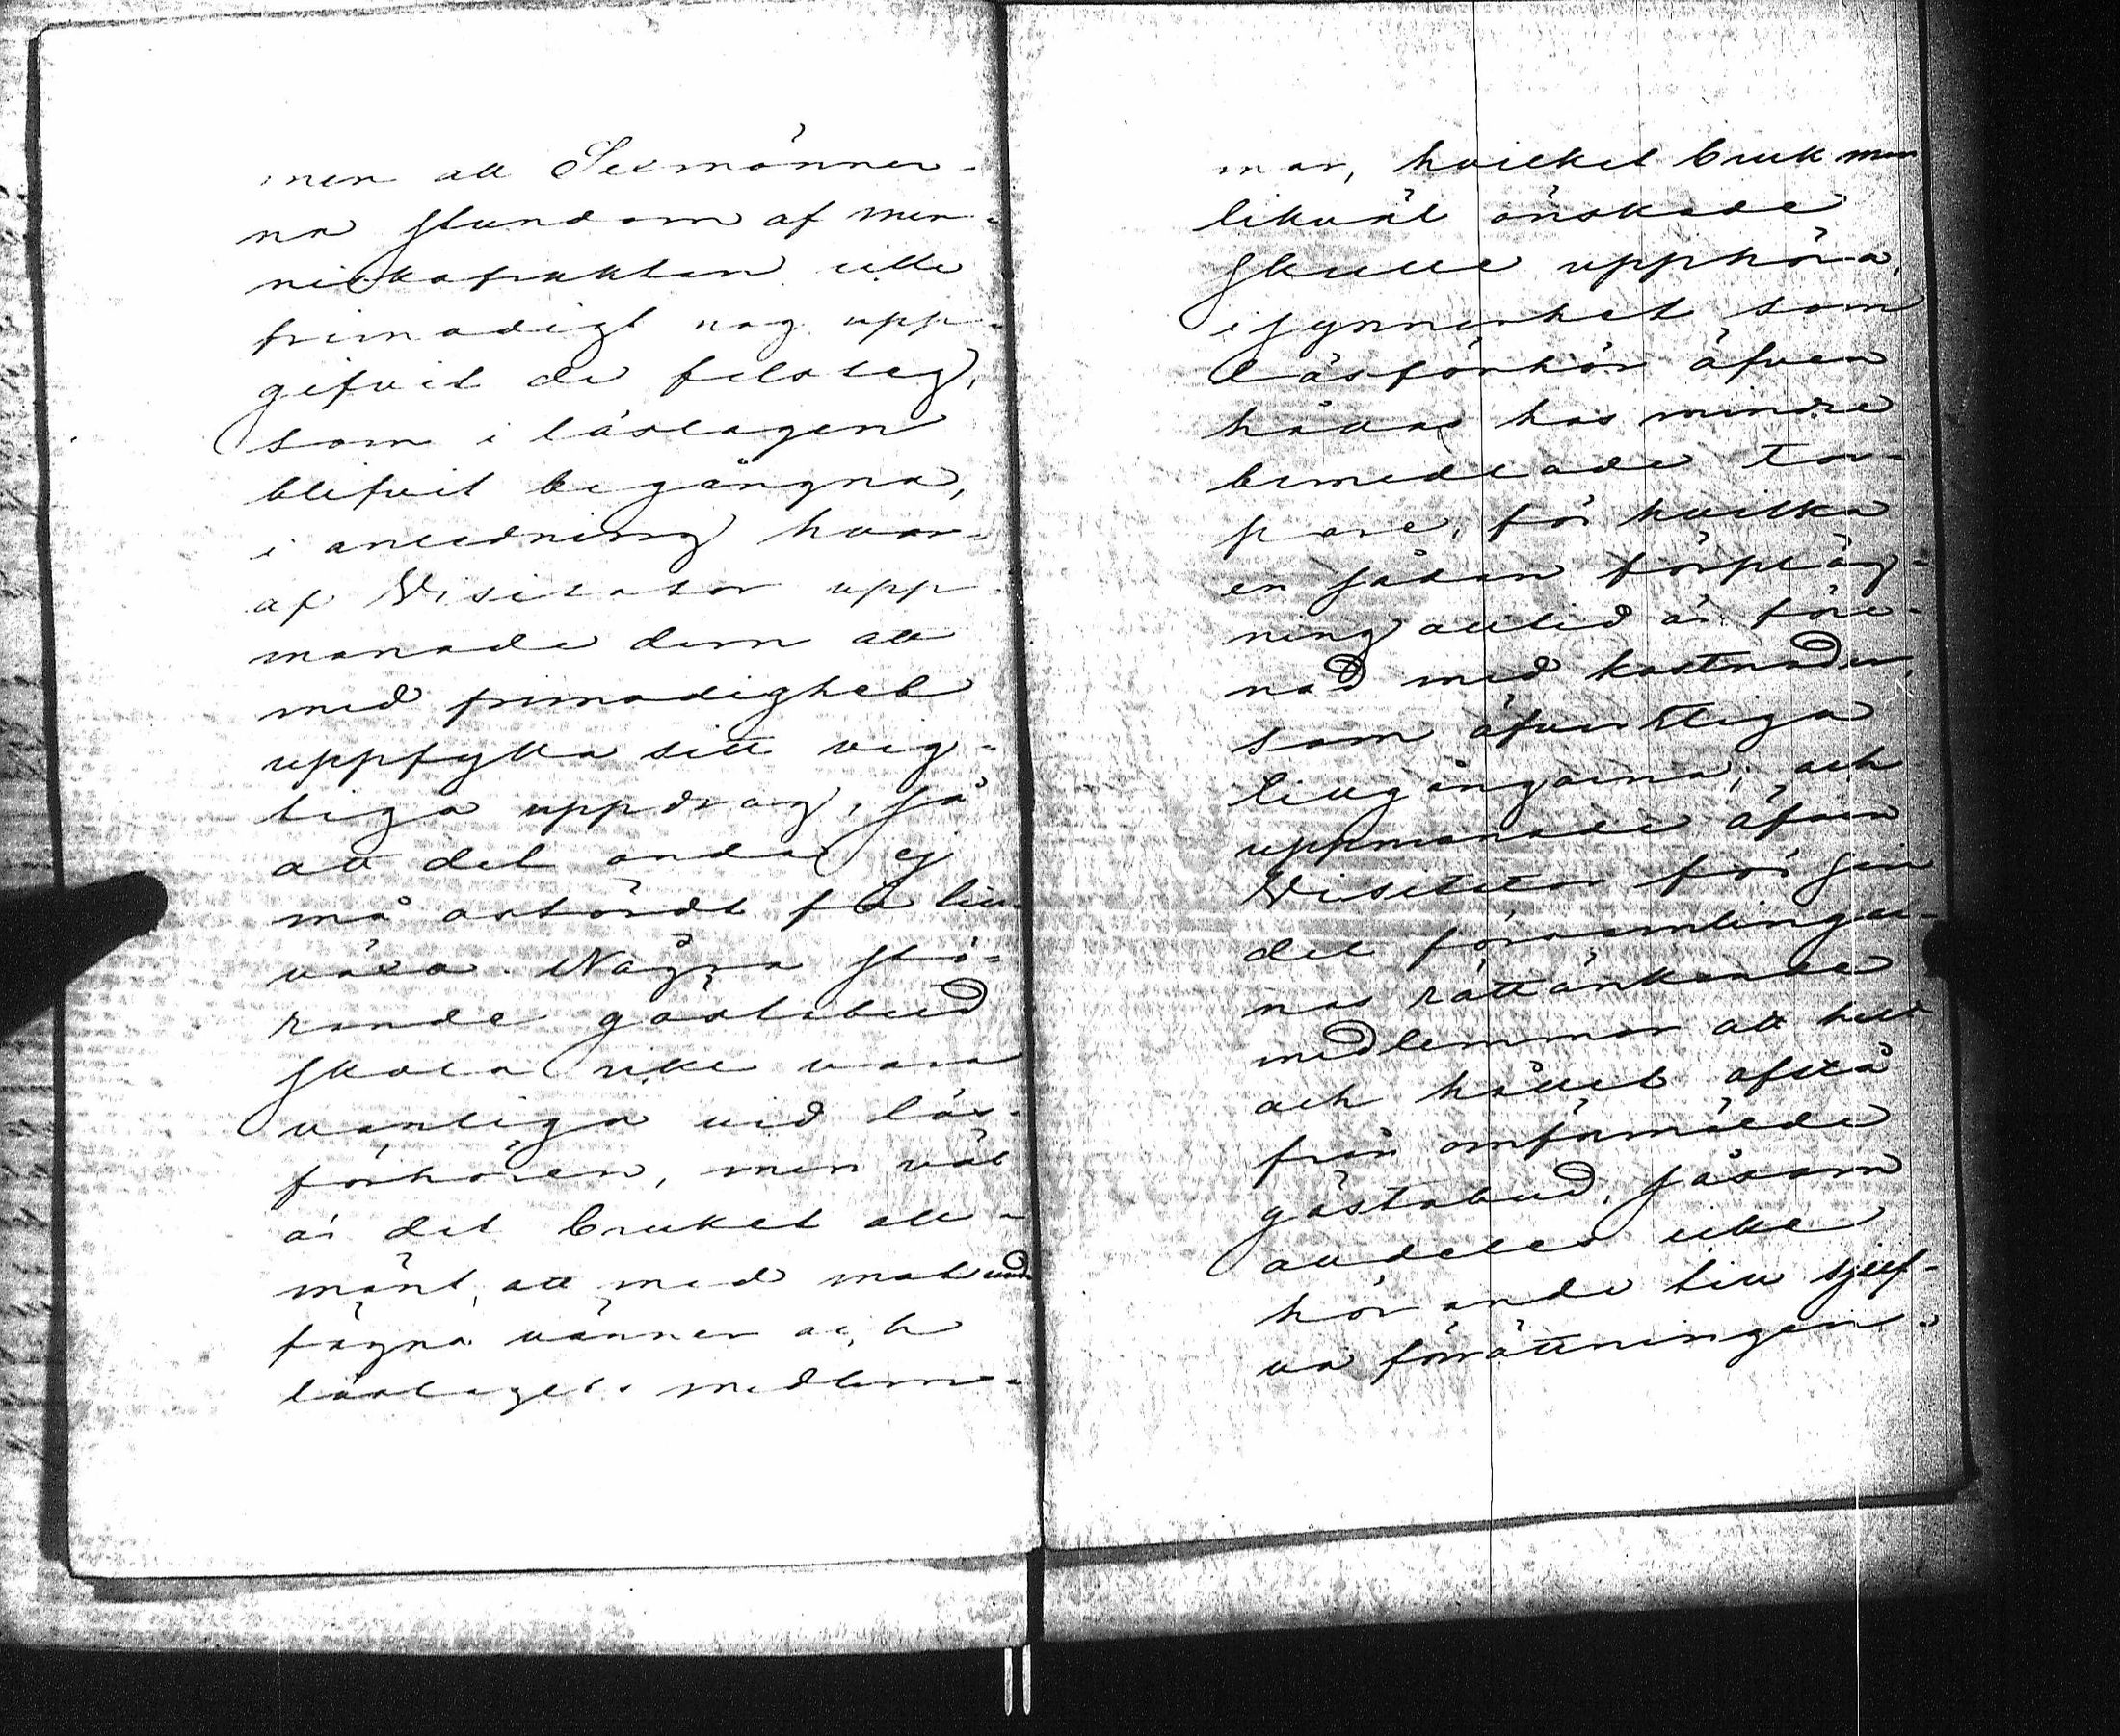 men att Sexmänner-
na stundom af men-
niskofruktan icke
frimodigt nog upp-
gifvit de felsteg,
som i läslagen
blifvit begångna,
i anledning hvar-
af Visitator upp-
manade dem att
med frimodighet
uppfylla sitt vig-
tiga uppdrag, så
att det onda ej
må ostördt få till-
växa. Några stö-
rande gästabud
skola icke vara
vanliga vid läs-
förhören, men väl
är det bruket all-
mänt, att med mat und-
fägna vänner och
läslagets medlem-
mar, hvilket bruk man
likväl önskade
skulle upphöra,
isynnerhet som
läsförhör äfven
hållas hos mindre
bemedlade Tor-
pare, för hvilka
en sådan förpläg-
ning alltid är före-
nad med kostnader,
som öfverstiga
tillgångarna; och
uppmanade äfven
Visitator för sin
del församlingar-
nas rättänkande
medlemmar att helt
och hållet afstå
från omförmälde
gästabud, såsom
alldeles icke
hörande till sjelf-
va förrättningen.